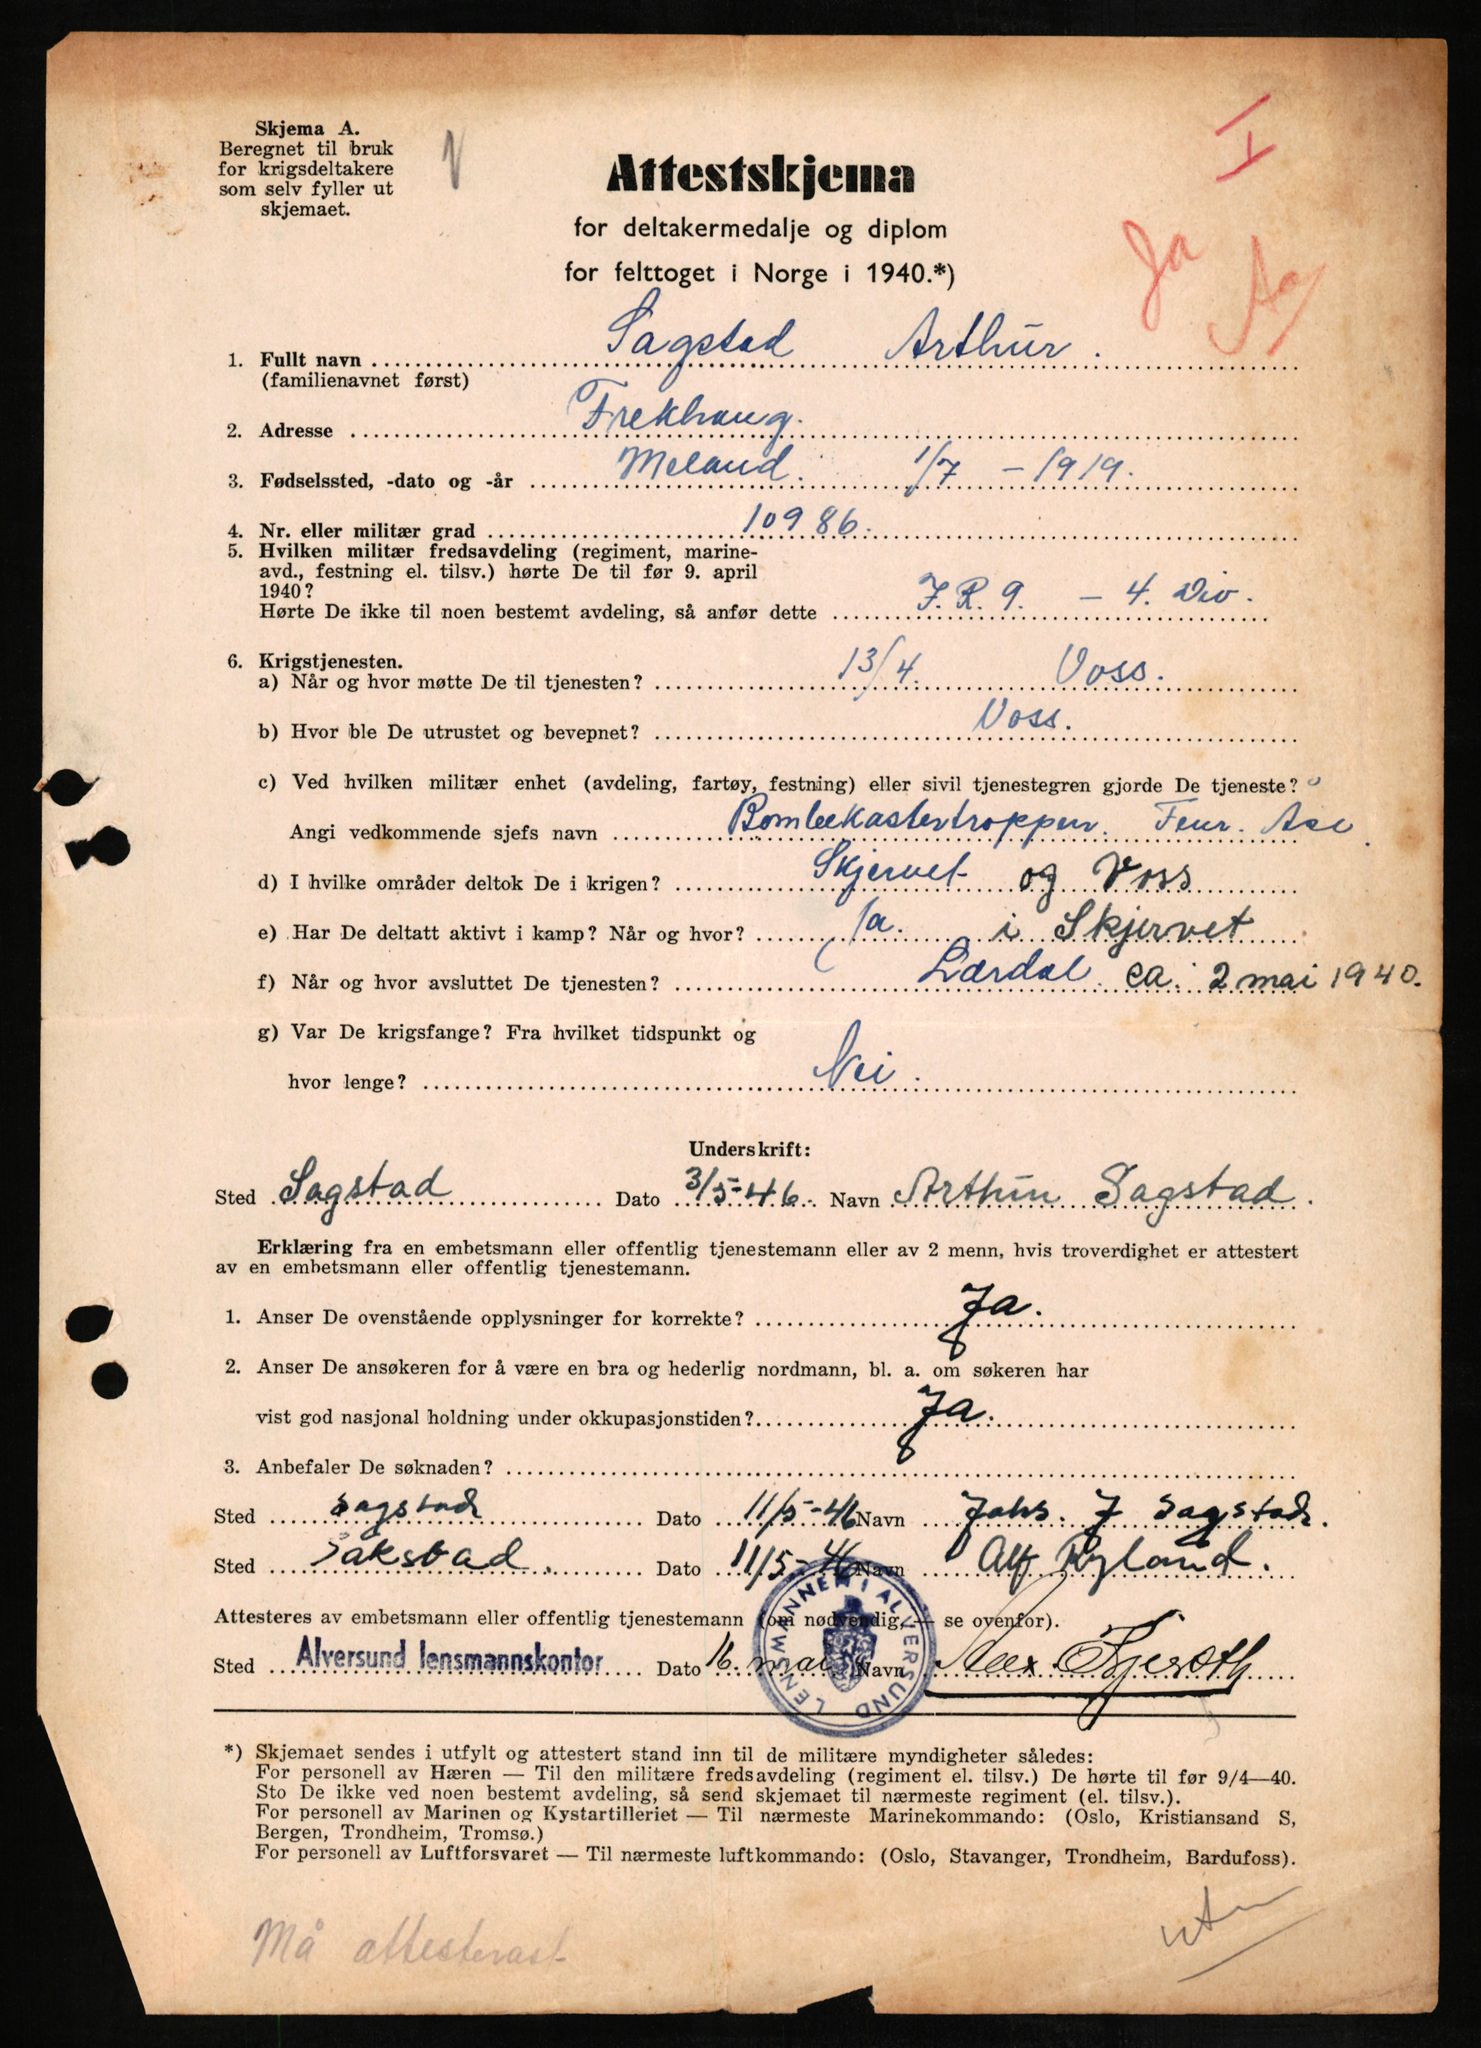 Skjema A.
Beregnet til bruk
for krigsdeltakere
som selv fyller ut
skjemaet.
I
Ja
Attestskjema
for deltakermedalje og diplom
for felttoget i Norge i 1940.*)
1. Fullt navn Sagstad Arthur.
(familienavnet først)
2. Adresse Frekhaug.
3. Fødselssted, -dato og -år Meland. 1/7 – 1919.
4. Nr. eller militær grad 10986.
5. Hvilken militær fredsavdeling (regiment, marine-
avd., festning el. tilsv.) hørte De til før 9. april
1940?
Hørte De ikke til noen bestemt avdeling, så anfør dette J.R. 9. – 4. Div.
6. Krigstjenesten.
a) Når og hvor møtte De til tjenesten? 13/4. Voss.
b) Hvor ble De utrustet og bevepnet? Voss.
c) Ved hvilken militær enhet (avdeling, fartøy, festning) eller sivil tjenestegren gjorde De tjeneste?
Angi vedkommende sjefs navn Bombekastertroppen. Fenr. Ase
d) I hvilke områder deltok De i krigen? Skjervet og Voss
e) Har De deltatt aktivt i kamp? Når og hvor? Ja. i Skjervet
f) Når og hvor avsluttet De tjenesten? Lærdal ca. 2 mai 1940.
g) Var De krigsfange? Fra hvilket tidspunkt og
hvor lenge? Nei.
Underskrift:
Sted Sagstad Dato 3/5-46. Navn Arthur Sagstad.
Erklæring fra en embetsmann eller offentlig tjenestemann eller av 2 menn, hvis troverdighet er attestert
av en embetsmann eller offentlig tjenestemann.
1. Anser De ovenstående opplysninger for korrekte? Ja.
2. Anser De ansøkeren for å være en bra og hederlig nordmann, bl. a. om søkeren har
vist god nasjonal holdning under okkupasjonstiden? Ja.
3. Anbefaler De søknaden?
Sted Sagstad Dato 11/5-46 Navn Johs. J Sagstad.
Sted Sakstad. Dato 11/5-46 Navn Alf Ryland.
Attesteres av embetsmann eller offentlig tjenestemann (om nødvendig, — se ovenfor).
Sted Alversund lensmannskontor Dato 16. mai Navn
LENSMANNEN I ALVERSUND
*) Skjemaet sendes i utfylt og attestert stand inn til de militære myndigheter således:
For personell av Hæren — Til den militære fredsavdeling (regiment el. tilsv.) De hørte til før 9/4—40.
Sto De ikke ved noen bestemt avdeling, så send skjemaet til nærmeste regiment (el. tilsv.).
For personell av Marinen og Kystartilleriet — Til nærmeste Marinekommando: (Oslo, Kristiansand S,
Bergen, Trondheim, Tromsø.)
For personell av Luftforsvaret — Til nærmeste luftkommando: (Oslo, Stavanger, Trondheim, Bardufoss).
Må attesterast